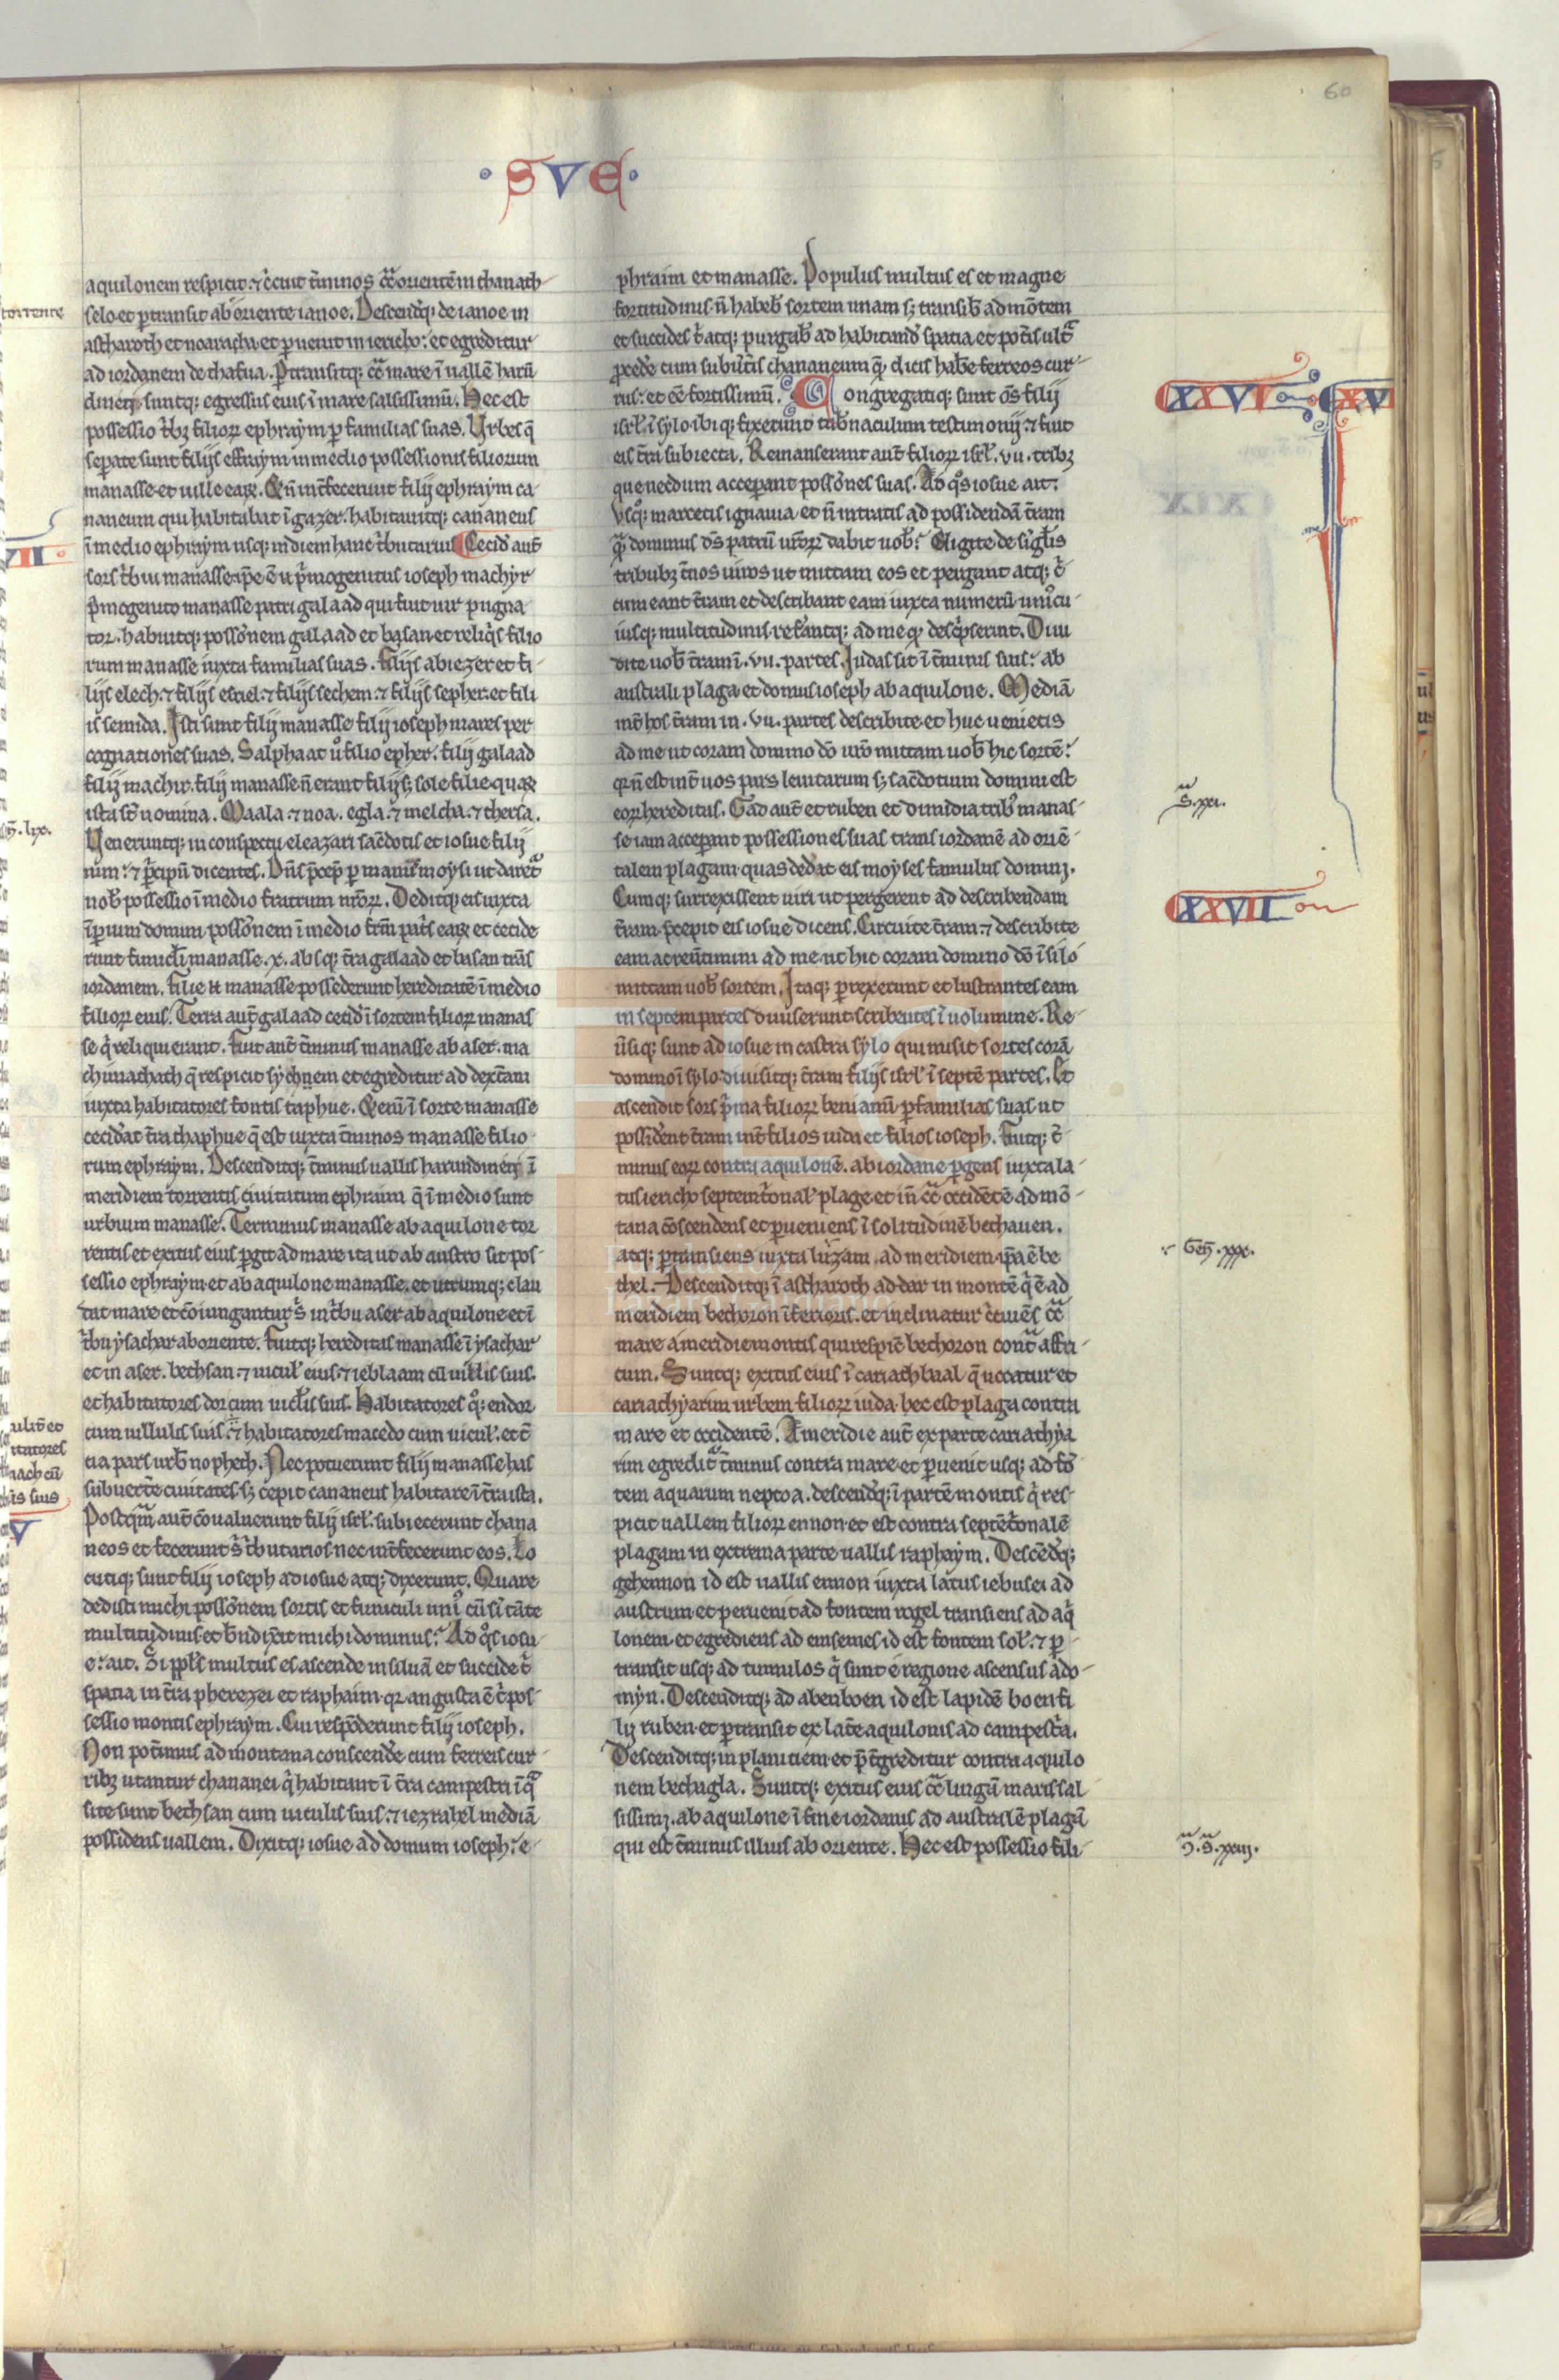 60
· SVE ·
aquilonem respicit. ⁊ c̃cuit t̃minos c̃a orientẽ in thanath
selo. et ꝑtransit ab oriente ianoe. Descenditq; de ianoe in
astharoth et noaratha. et ꝑuenit in iericho: et egreditur
ad iordanem de thafua. Ꝑtransitq; c̃a mare ĩ uallẽ harũ
dineti. suntq; egressus eius ĩ mare salsissimũ. Hec est
possessio t̃bꝫ filioꝝ ephraym ꝑ familias suas. Vrbes q̃
seꝑate sunt filijs effraym in medio possessionis filiorum
manasse. et uille eaꝝ. Et ñ int̃fecerunt filij ephraym ca
naneum qui habitabat ĩ gazer. habitauitq; cananeus
ĩ medio ephraym usq; in diem hanc t̃butarius. Cecid̾ aut̃
sors t̃bui manasse. ip̃e ẽ ñ p̃mogenitus ioseph machyr
p̃mogenito manasse patri galaad qui fuit uir pugna
tor. habuitq; possõnem galaad et basan et reliq̃s filio
rum manasse iuxta familias suas. filijs abiezer et fi
lijs elech. ⁊ filijs esriel. ⁊ filijs sechem. ⁊ filijs sepher. et fili
is semida. Isti sunt filij manasse filij ioseph mares per
cognationes suas. Salphaat ũ filio epher. filij galaad
filij machir. filij manasse ñ erant filij sꝫ sole filie quaꝝ
ista st̃ nomina. Maala. ⁊ noa. egla. ⁊ melcha. ⁊ thersa.
Veneruntq; in conspectu eleazari sac̃dotis et iosue filij
nun: ⁊ p̃cipũ dicentes. Dñs p̃cep̃ ꝑ manũ moysi ut daret̃
nob̾ possessio ĩ medio fratrum nr̃oꝝ. Deditq; eis iuxta
ĩꝑium domini possõnem ĩ medio fr̃m pat̃s eaꝝ et cecide
runt funicl̾i manasse. x. absq; t̃ra galaad et basan tr̃ns
iordanem. filie ẽi manasse possederunt hereditatẽ ĩ medio
filioꝝ eius. Terra aut̃ galaad cecid̾ ĩ sortem filioꝝ manas
se q̃ reliqui erant. fuit aut̃ t̃minus manasse ab aser. ma
chmathath q̃ respicit sychnem et egreditur ad dext̃am
iuxta habitatores fontis taphue. Etenĩ ĩ sorte manasse
cecid̾at t̃ra thaphue q̃ est iuxta t̃minos manasse filio
rum ephraym. Descenditq; t̃minus uallis harundineti ĩ
meridiem torrentis ciuitatum ephraim q̃ ĩ medio sunt
urbium manasse. Terminus manasse ab aquilone tor
rentis et exitus eius ꝑgit ad mare ita ut ab austro sit pos
sessio ephraym. et ab aquilone manasse. et utrumq; clau
dat mare et cõiungantur s̃ in t̃bu aser ab aquilone et ĩ
t̃bu ysachar ab oriente. fuitq; hereditas manasse ĩ ysachar
et in aser. bethsan. ⁊ uicul̾ eius. ⁊ ieblaam cũ uillis suis.
et habitatores dor cum uicl̾is suis. Habitatores q̾q; endor
cum uillulis suis. ⁊ habitatores macedo cum uicul̾. et t̃
tia pars urb̾ nopheth. Nec potuerunt filij manasse has
subuert̃e ciuitates. sꝫ cepit cananeus habitare ĩ t̃ra ista.
Postq̃m aut̃ cõualuerunt filij isrl̾. subiecerunt chana
neos et fecerunt s̃ t̃butarios nec int̃fecerunt eos. Lo
cutiq; sunt filij ioseph ad iosue atq; dixerunt. Quare
dedisti michi possõnem sortis et funiculi uni̾ cũ si̾ tãte
multitudinis et b̾ndix̃it michi dominus: Ad q̾s iosu
e: ait. Si ppl̾s multus es ascende in siluã et succide t̃
spatia in t̃ra pherezei et raphaim. qꝛ angusta ẽ t̃ pos
sessio montis ephraym. Cui respõderunt filij ioseph.
Non pot̃imus ad montana conscend̾e cum ferreis cur
ribꝫ utantur chananei q̃ habitant ĩ t̃ra campestri ĩ q̃
site sunt bethsan cum uiculis suis. ⁊ iezrahel mediã
possidens uallem. Dixitq; iosue ad domum ioseph: e
phraim et manasse. Populus multus es et magne
fortitudinis. ñ habeb̾ sortem unam sꝫ transib̾ ad mõtem
et succides t̃ atq; purgab̾ ad habitand̾ spatia et pot̃is ult̃
ꝓced̾e cum subũt̃is chananeum q̃ dicis hab̾e ferreos cur
rus: et eẽ fortissimũ. Congregatiq; sunt oẽs filij
isrl̾. ĩ sylo ibiq; fixerunt tab̾naculum testimonij ⁊ fuit
eis t̃ra subiecta. Remanserant aut̃ filioꝝ isrl̾. vii. tribꝫ
que necdum acceꝑant possõnes suas. Ad q̾s iosue ait.
Vsq; marcetis ignauia et ñ intratis ad possidendã t̃ram
q̃ dominus dẽs patrũ ur̃oꝝ dabit uob̾: Eligite de si̾gl̾is
tribubꝫ t̃nos uiros ut mittam eos et pergant atq; c̃
cumeant t̃ram et describant eam iuxta numerũ uni̾cu
iusq; multitudinis. referantq; ad me q̾ desc̾pserint. Diui
dite uob̾ t̃ram ĩ. vii. partes. Iudas sit ĩ t̃minis suis: ab
australi plaga et domus ioseph ab aquilone. Mediã
int̃ hos t̃ram in. vii. partes describite et huc uenietis
ad me ut coram domino dõ ur̃o mittam uob̾ hic sortẽ:
qꝛ ñ est int̃ uos pars leuitarum sꝫ sac̃dotium domini est
eoꝝ hereditas. Gad aut̃ et ruben et dimidia trib̾ manas
se iam acceꝑant possessiones suas trans iordanẽ ad oriẽ
talem plagam. quas ded̾at eis moyses famulus domini.
Cumq; surrexissent uiri ut pergerent ad describendam
t̃ram. p̃cepit eis iosue dicens. Circuite t̃ram. ⁊ describite
eam ac reũtimini ad me. ut hic coram domino dõ ĩ silo
mittam uob̾ sortem. Itaq; ꝑrexerunt et lustrantes eam
in septem partes diuiserunt. scribentes ĩ uolumine. Re
ũsiq; sunt ad iosue in castra sylo qui misit sortes corã
domino ĩ sylo. diuisitq; t̃ram filijs isrl̾ ĩ septẽ partes. Et
ascendit sors p̃ma filioꝝ beniamĩ ꝑ familias suas ut
possid̾ent t̃ram int̃ filios iuda et filios ioseph. fuitq; t̃
minus eoꝝ contra aquilonẽ. ab iordane ꝑgens iuxta la
tus iericho septemt̃onal̾ plage et iñ c̃a occidẽtẽ ad mõ
tana cõscendens et ꝑueniens ĩ solitudinẽ bethauen.
atq; ꝑtransiens iuxta luzam. ad meridiem. ip̃a ẽ be
thel. Descenditq; ĩ astharoth addar in montẽ q̃ ẽ ad
meridiem bethoron ĩferioris. et inclinatur c̃cuiẽs c̃a
mare a meridie montis qui respi̾c bethoron cont̃ affri
cum. Suntq; exitus eius ĩ cariathbaal q̃ uocatur et
cariathyarim urbem filioꝝ iuda. hec est plaga contra
mare et occidentẽ. A meridie aut̃ ex parte cariathya
rim egredit̃ t̃minus contra mare. et ꝑuenit usq; ad fõ
tem aquarum neptoa. descendq; ĩ partẽ montis q̃ res
picit uallem filioꝝ ennon. et est contra septẽt̃onalẽ
plagam in extrema parte uallis raphaym. Descẽdq;
gehennon id est uallis ennon iuxta latus iebusei ad
austrum. et peruenit ad fontem rogel transiens ad aq̃
lonem. et egrediens ad emsemes id est fontem sol̾. ⁊ ꝑ
transit usq; ad tumulos q̃ sunt e regione ascensus ado
myn. Descenditq; ad abenboen id est lapidẽ boen fi
lij ruben. et ꝑtransit ex lat̃e aquilonis ad campest̃a.
Descenditq; in planitiem. et p̃t̃greditur contra aquilo
nem bethagla. Suntq; exitus eius c̃a linguã maris sal
sissimi. ab aquilone ĩ fine iordanis ad australẽ plagã
qui est t̃minus illius ab oriente. Hec est possessio fili
torrente
VII
lix.
XXVI
XV
xxi.
XXVII
Geñ. xxx.